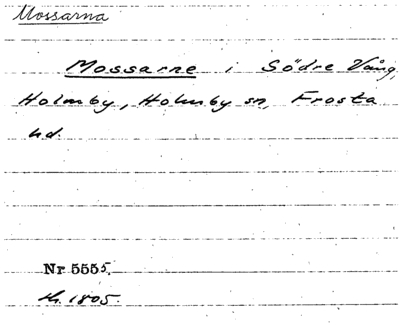 Mossarna
Mossarne i Södre Vång,
Holmby, Holmby sn, Frosta
hd.
Nr 5555.
Kr. 1805.